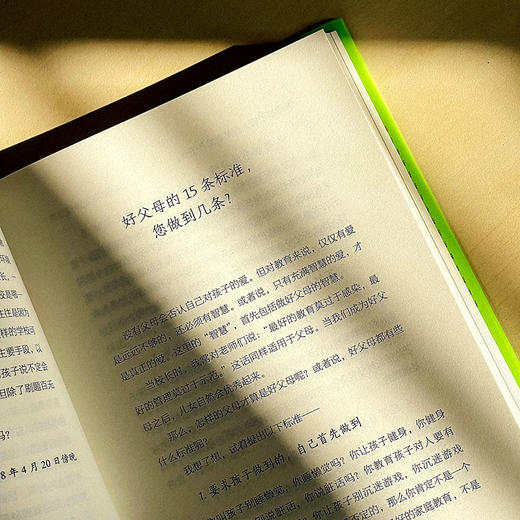 环境
长，“
校是哪一
往往是因为
样的学校可
主要手段，以
孩子说不定会
日除了刷题百无
吗？
8 年 4 月 20 日傍晚
好父母的 15 条标准，
您做到几条？
没有父母会否认自己对孩子的爱。但对教育来说，仅仅有爱
是远远不够的，还必须有智慧。或者说，只有充满智慧的爱，才
是真正的爱。这里的“智慧”，首先包括做好父母的智慧。
当校长时，我常对老师们说：“最好的教育莫过于感染，最
好的管理莫过于示范。”这话同样适用于父母。当我们成为好父
母之后，儿女自然会优秀起来。
那么，怎样的父母才算是好父母呢？或者说，好父母都有些
什么标准呢？
我想了想，试着提出以下标准——
1. 要求孩子做到的，自己首先做到
你叫孩子别睡懒觉，你睡懒觉吗？你让孩子健身，你健身
你说脏话吗？你教育孩子对人要有
你让孩子别沉迷游戏，你沉迷游戏
不定的，那么你肯定不是一个
好的家庭教育，不是